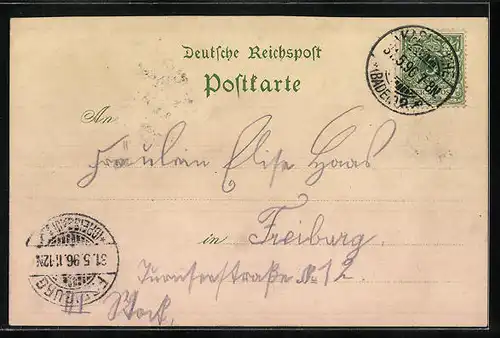 Deutsche Reichspost
Postkarte
31.5.96.
(BADEN)
An
Fräulein Elise Haas
in Freiburg
31.5.96.11-12N
BURG
Turnseestraße No 12.
III Stock.